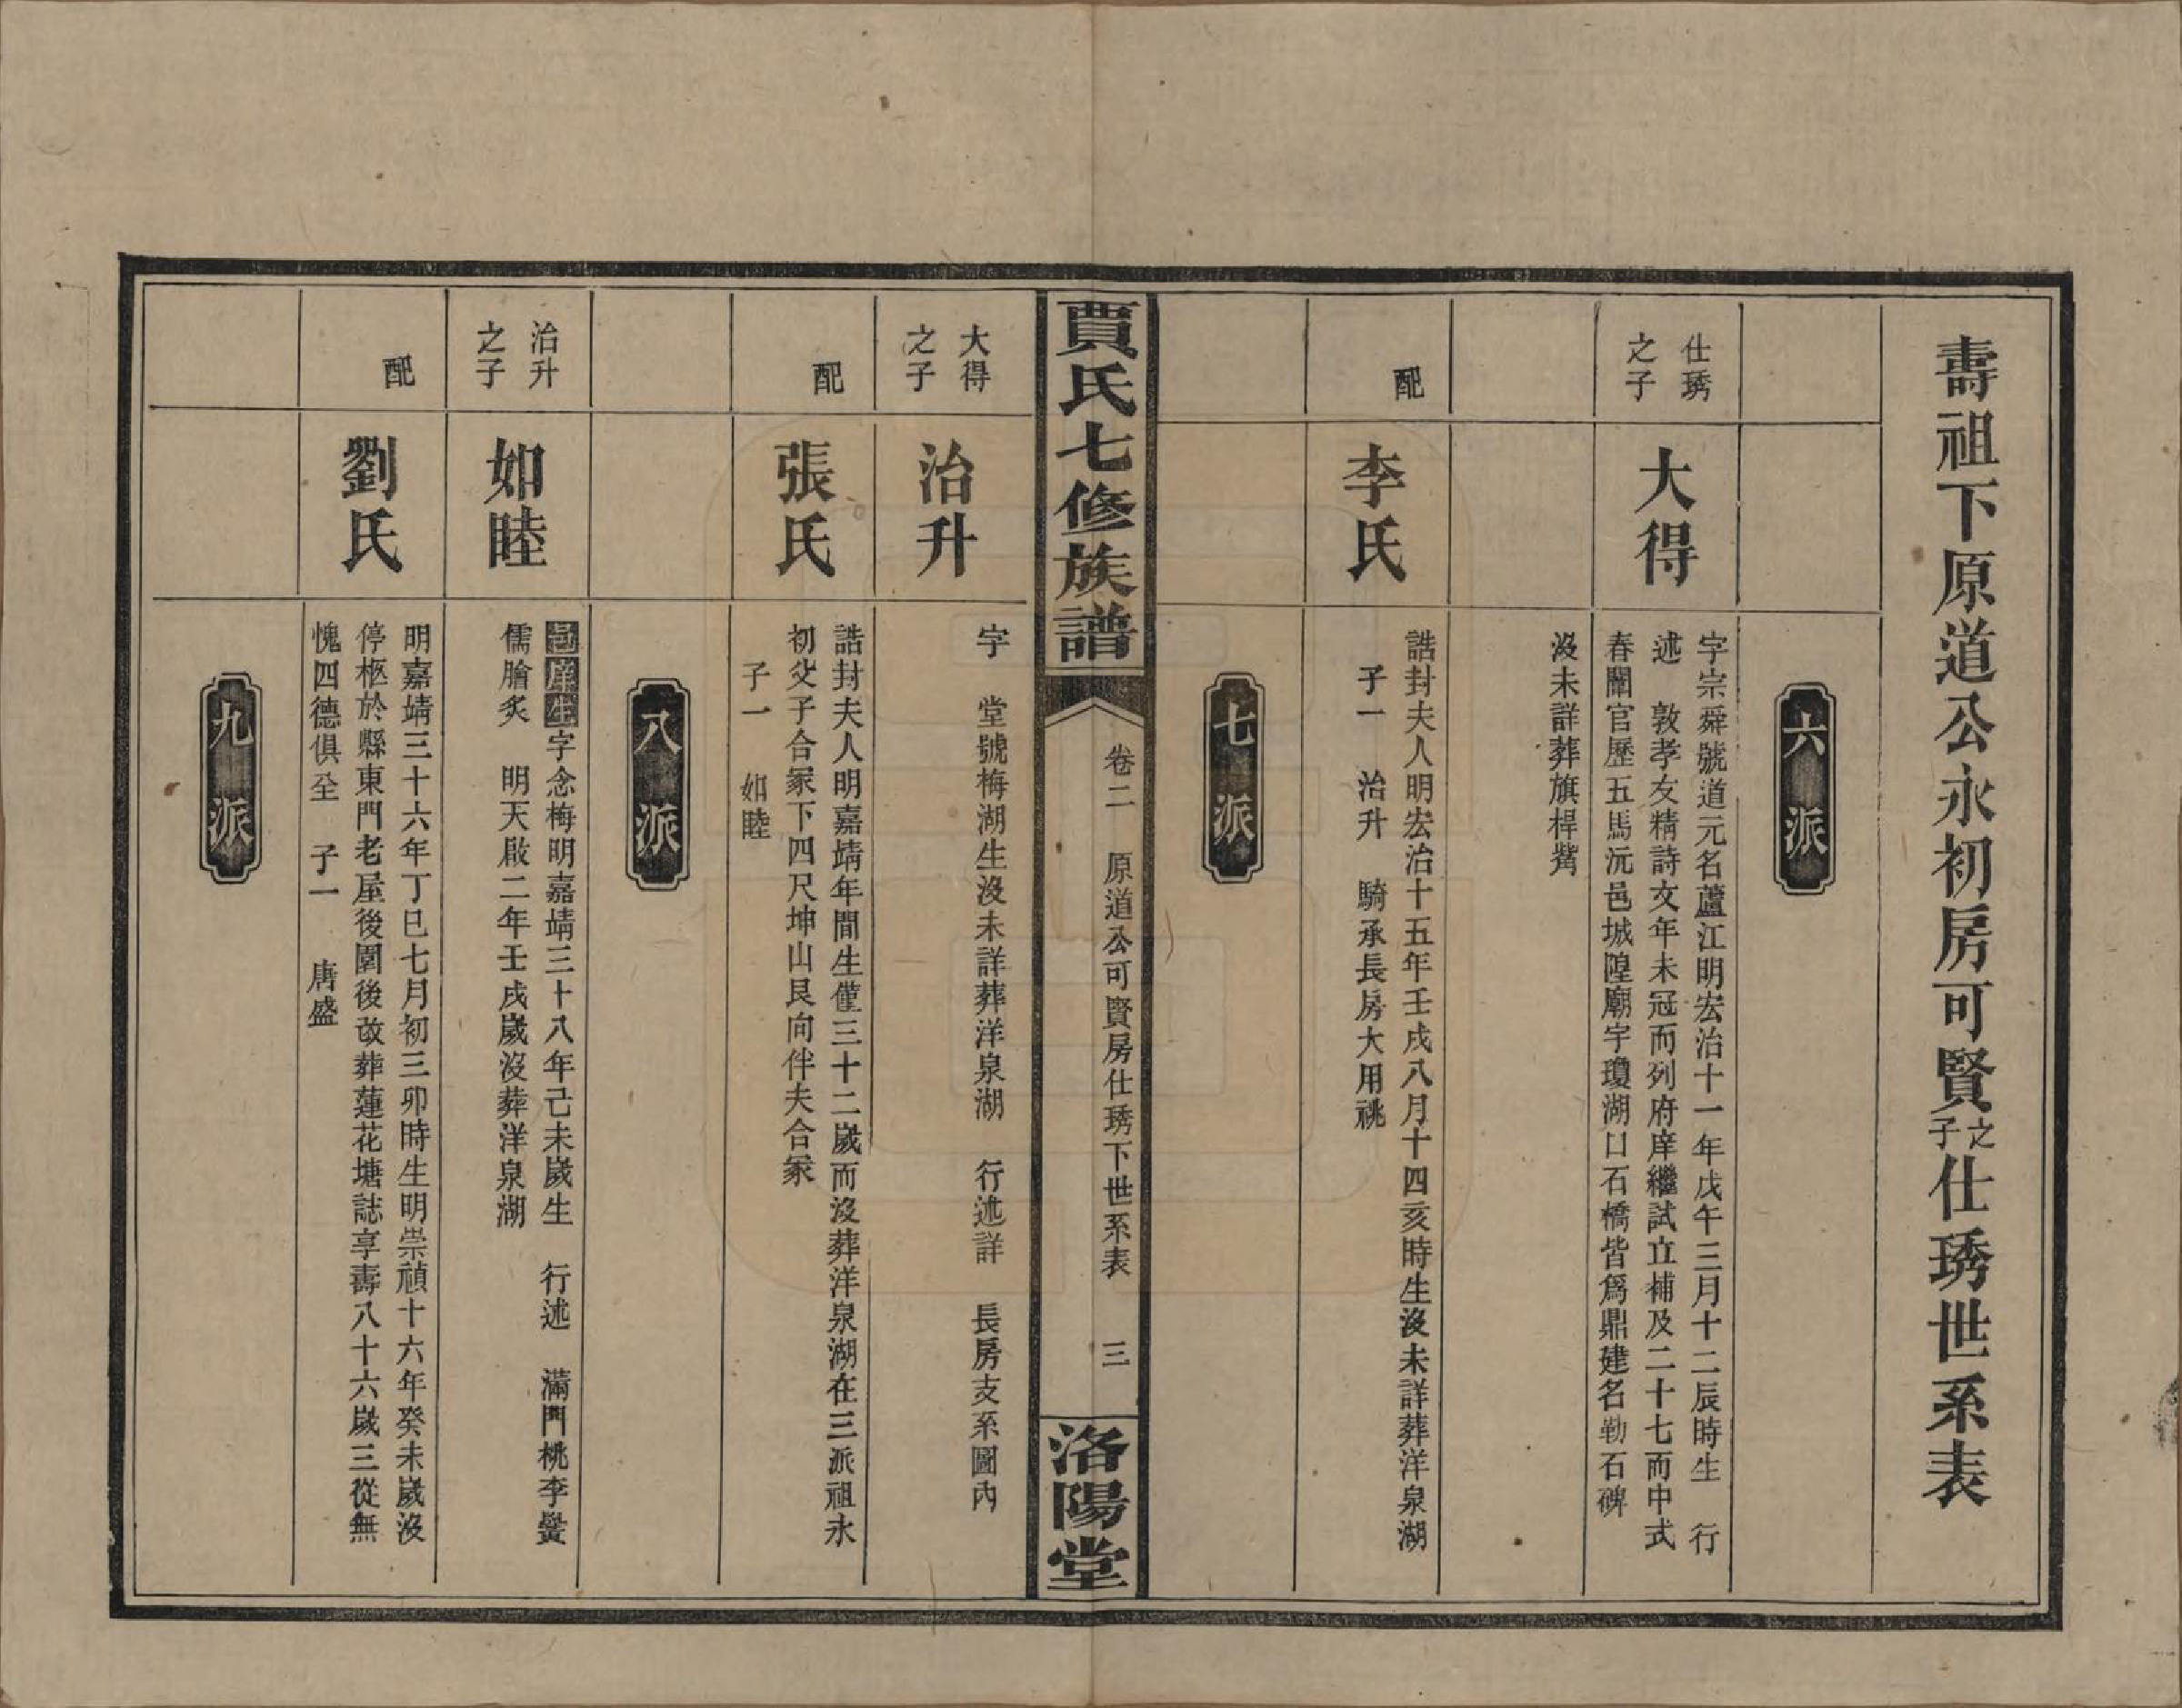 壽祖下原道公永初房可賢之子仕琇世系表
六派
仕琇之子
大得
字宗舜號道元名蘆江明宏治十一年戊午三月十二辰時生　行
述　敦孝友精詩文年未冠而列府庠繼試立補及二十七而中式
春闈官歷五馬沅邑城隍廟宇瓊湖口石橋皆爲鼎建名勒石碑
沒未詳葬旗桿觜
配
李氏
誥封夫人明宏治十五年壬戌八月十四亥時生沒未詳葬洋泉湖
子一　治升　騎承長房大用祧
七派
賈氏七修族譜
卷二　原道公可賢房仕琇下世系表　三
洛陽堂
大得之子
治升
字　堂號梅湖生沒未詳葬洋泉湖　行述詳　長房支系圖內
配
張氏
誥封夫人明嘉靖年間生僅三十二歲而沒葬洋泉湖在三派祖永
初父子合冢下四尺坤山艮向伴夫合冢
子一　如睦
八派
治升之子
如睦
邑庠生字念梅明嘉靖三十八年己未歲生　行述　滿門桃李黌
儒膾炙　明天啟二年壬戌歲沒葬洋泉湖
配
劉氏
明嘉靖三十六年丁巳七月初三卯時生明崇禎十六年癸未歲沒
停柩於縣東門老屋後園後改葬蓮花塘誌享壽八十六歲三從無
愧四德俱全　子一　唐盛
九派